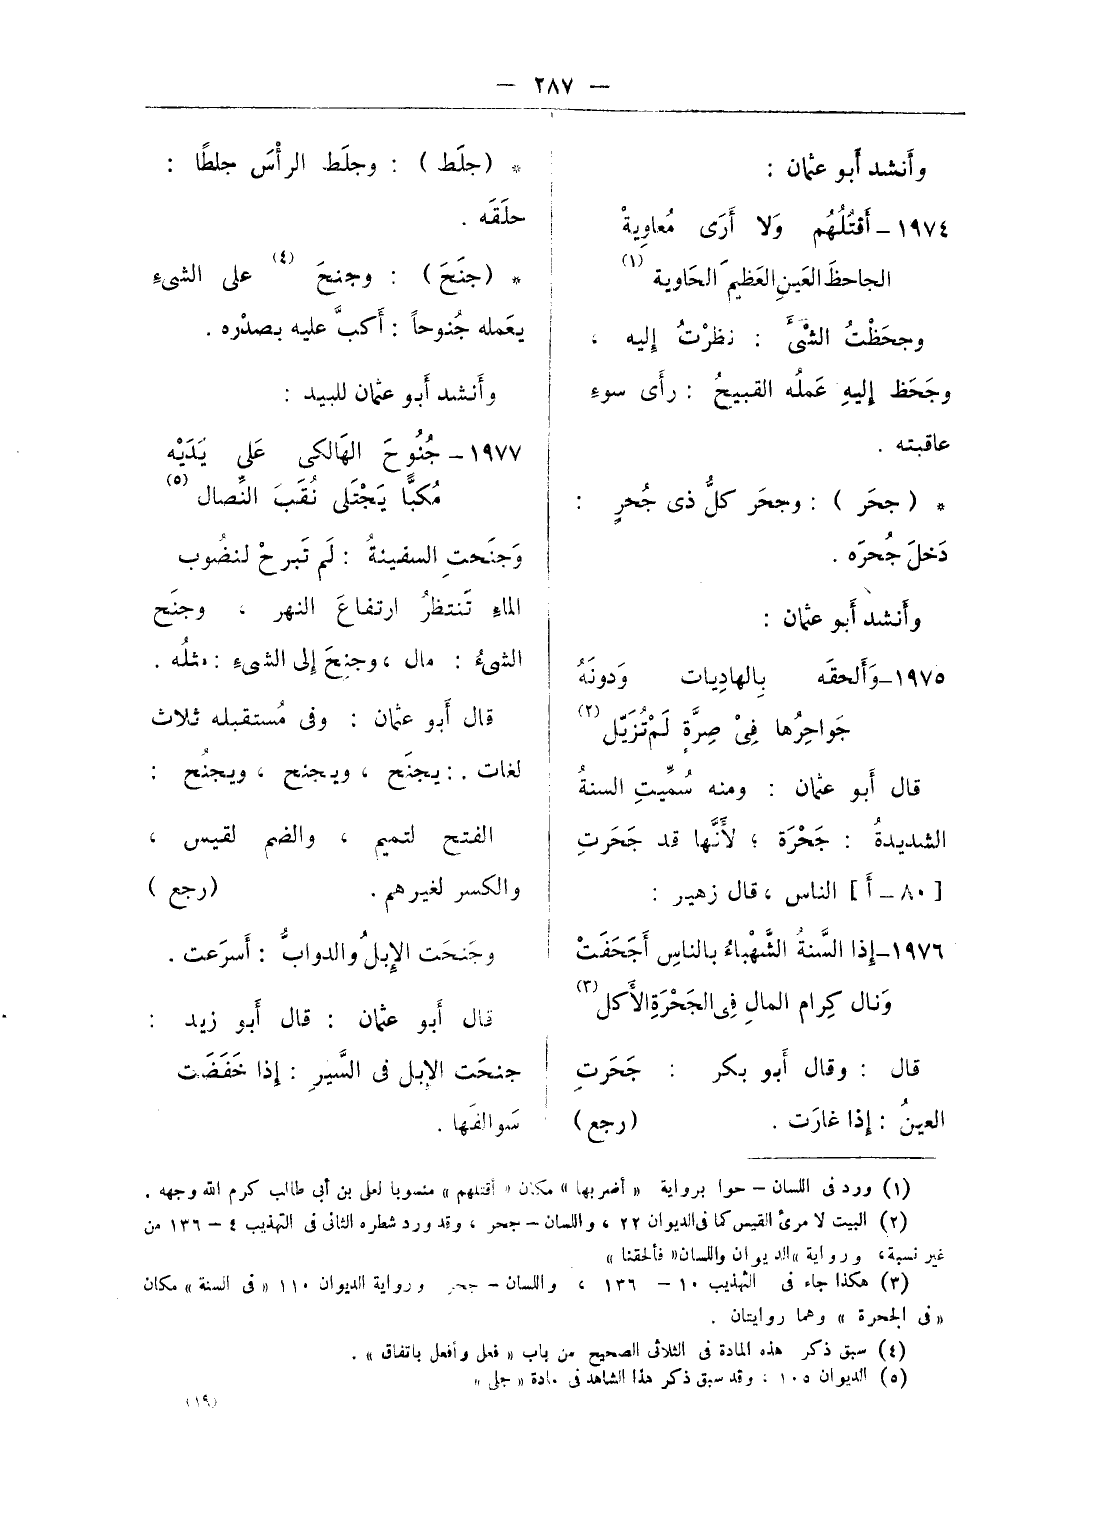 — ٢٨٧ —
وأَنشد أَبو عثمان :
١٩٧٤ – أَقتُلُهُم وَلا أَرَى مُعاوِيةْ
الجاحظَ العَينِ العَظيمَ الحَاوية (١)
وجحَظْتُ الشْىَّ : نظرْتُ إِليه ،
وجَحَظ إِليهِ عَملُه القبيحُ : رأَى سوءِ
عاقبته .
* ( جحَر ) : وجحَر كلُّ ذى جُحرٍ :
دَخلَ جُحرَه .
وأَنشد أَبو عثمان :
١٩٧٥–وَأَلحقَه بِالهادِيات وَدونَهُ
جَواحِرُها فِىْ صِرَّةٍ لَمْ تُزَيّل (٢)
قال أَبو عثمان : ومنه سُمِّيتِ السنةُ
الشديدةُ : جَحْرَة ؛ لأَنَّها قد جَحَرتِ
[ ٨٠ – أَ ] الناس ، قال زهير :
١٩٧٦–إِذا السَّنةُ الشَّهْباءُ بالناسِ أَجَحَفَتْ
وَنال كِرام المالِ فِى الجَحْرَةِ الأَكل (٣)
قال : وقال أَبو بكر : جَحَرتِ
العينُ : إِذا غارَت . (رجع)
* (جلَط ) : وجلَط الرأْسَ جلطًا :
حلَقَه .
* (جنَحَ ) : وجنحَ (٤) على الشىءِ
يعَمله جُنوحاً : أَكبَّ عليه بصدْره .
وأَنشد أَبو عثمان للبيد :
١٩٧٧ – جُنُوحَ الهَالكى عَلى يَدَيْه
مُكبًّا يَجْتَلى نُقَبَ النِّصال (٥)
وَجنَحتِ السفينةُ : لَم تَبرحْ لنضُوب
الماءِ تَنتظرُ ارتفاعَ النهر ، وجنَح
الشىءُ : مال ، وجنِحَ إِلى الشىءِ : مثلُه .
قال أَبو عثمان : وفى مُستقبله ثلاث
لغات . : يجنَح ، ويجنح ، ويجنُح :
الفتح لتميم ، والضم لقيس ،
والكسر لغيرهم . (رجع )
وجَنحَت الإِبلُ والدوابُّ : أَسرَعت .
قال أَبو عثمان : قال أَبو زيد :
جنحَت الإِبل فى السَّيرِ : إِذا خَفَضَت
سَوالفَها .
(١) ورد فى اللسان – حوا برواية « أضربها » مكان « أقتلهم » منسوبا لعلى بن أبى طالب كرم الله وجهه .
(٢) البيت لا مرئ القيس كما فى الديوان ٢٢ ، واللسان – جحر ، وقد ورد شطره الثانى فى التهذيب ٤ – ١٣٦ من
غير نسبة ، ورواية «الديوان واللسان« فألحقنا »
(٣) هكذا جاء فى التهذيب ١٠ – ١٣٦ ، واللسان – جحر ورواية الديوان ١١٠ « فى السنة » مكان
« فى الجحرة » وهما روايتان .
(٤) سبق ذكر هذه المادة فى الثلاثى الصحيح من باب « فعل وأفعل باتفاق » .
(٥) الديوان ١٠٥ ، وقد سبق ذكر هذا الشاهد فى مادة « جلى »
(١٩)